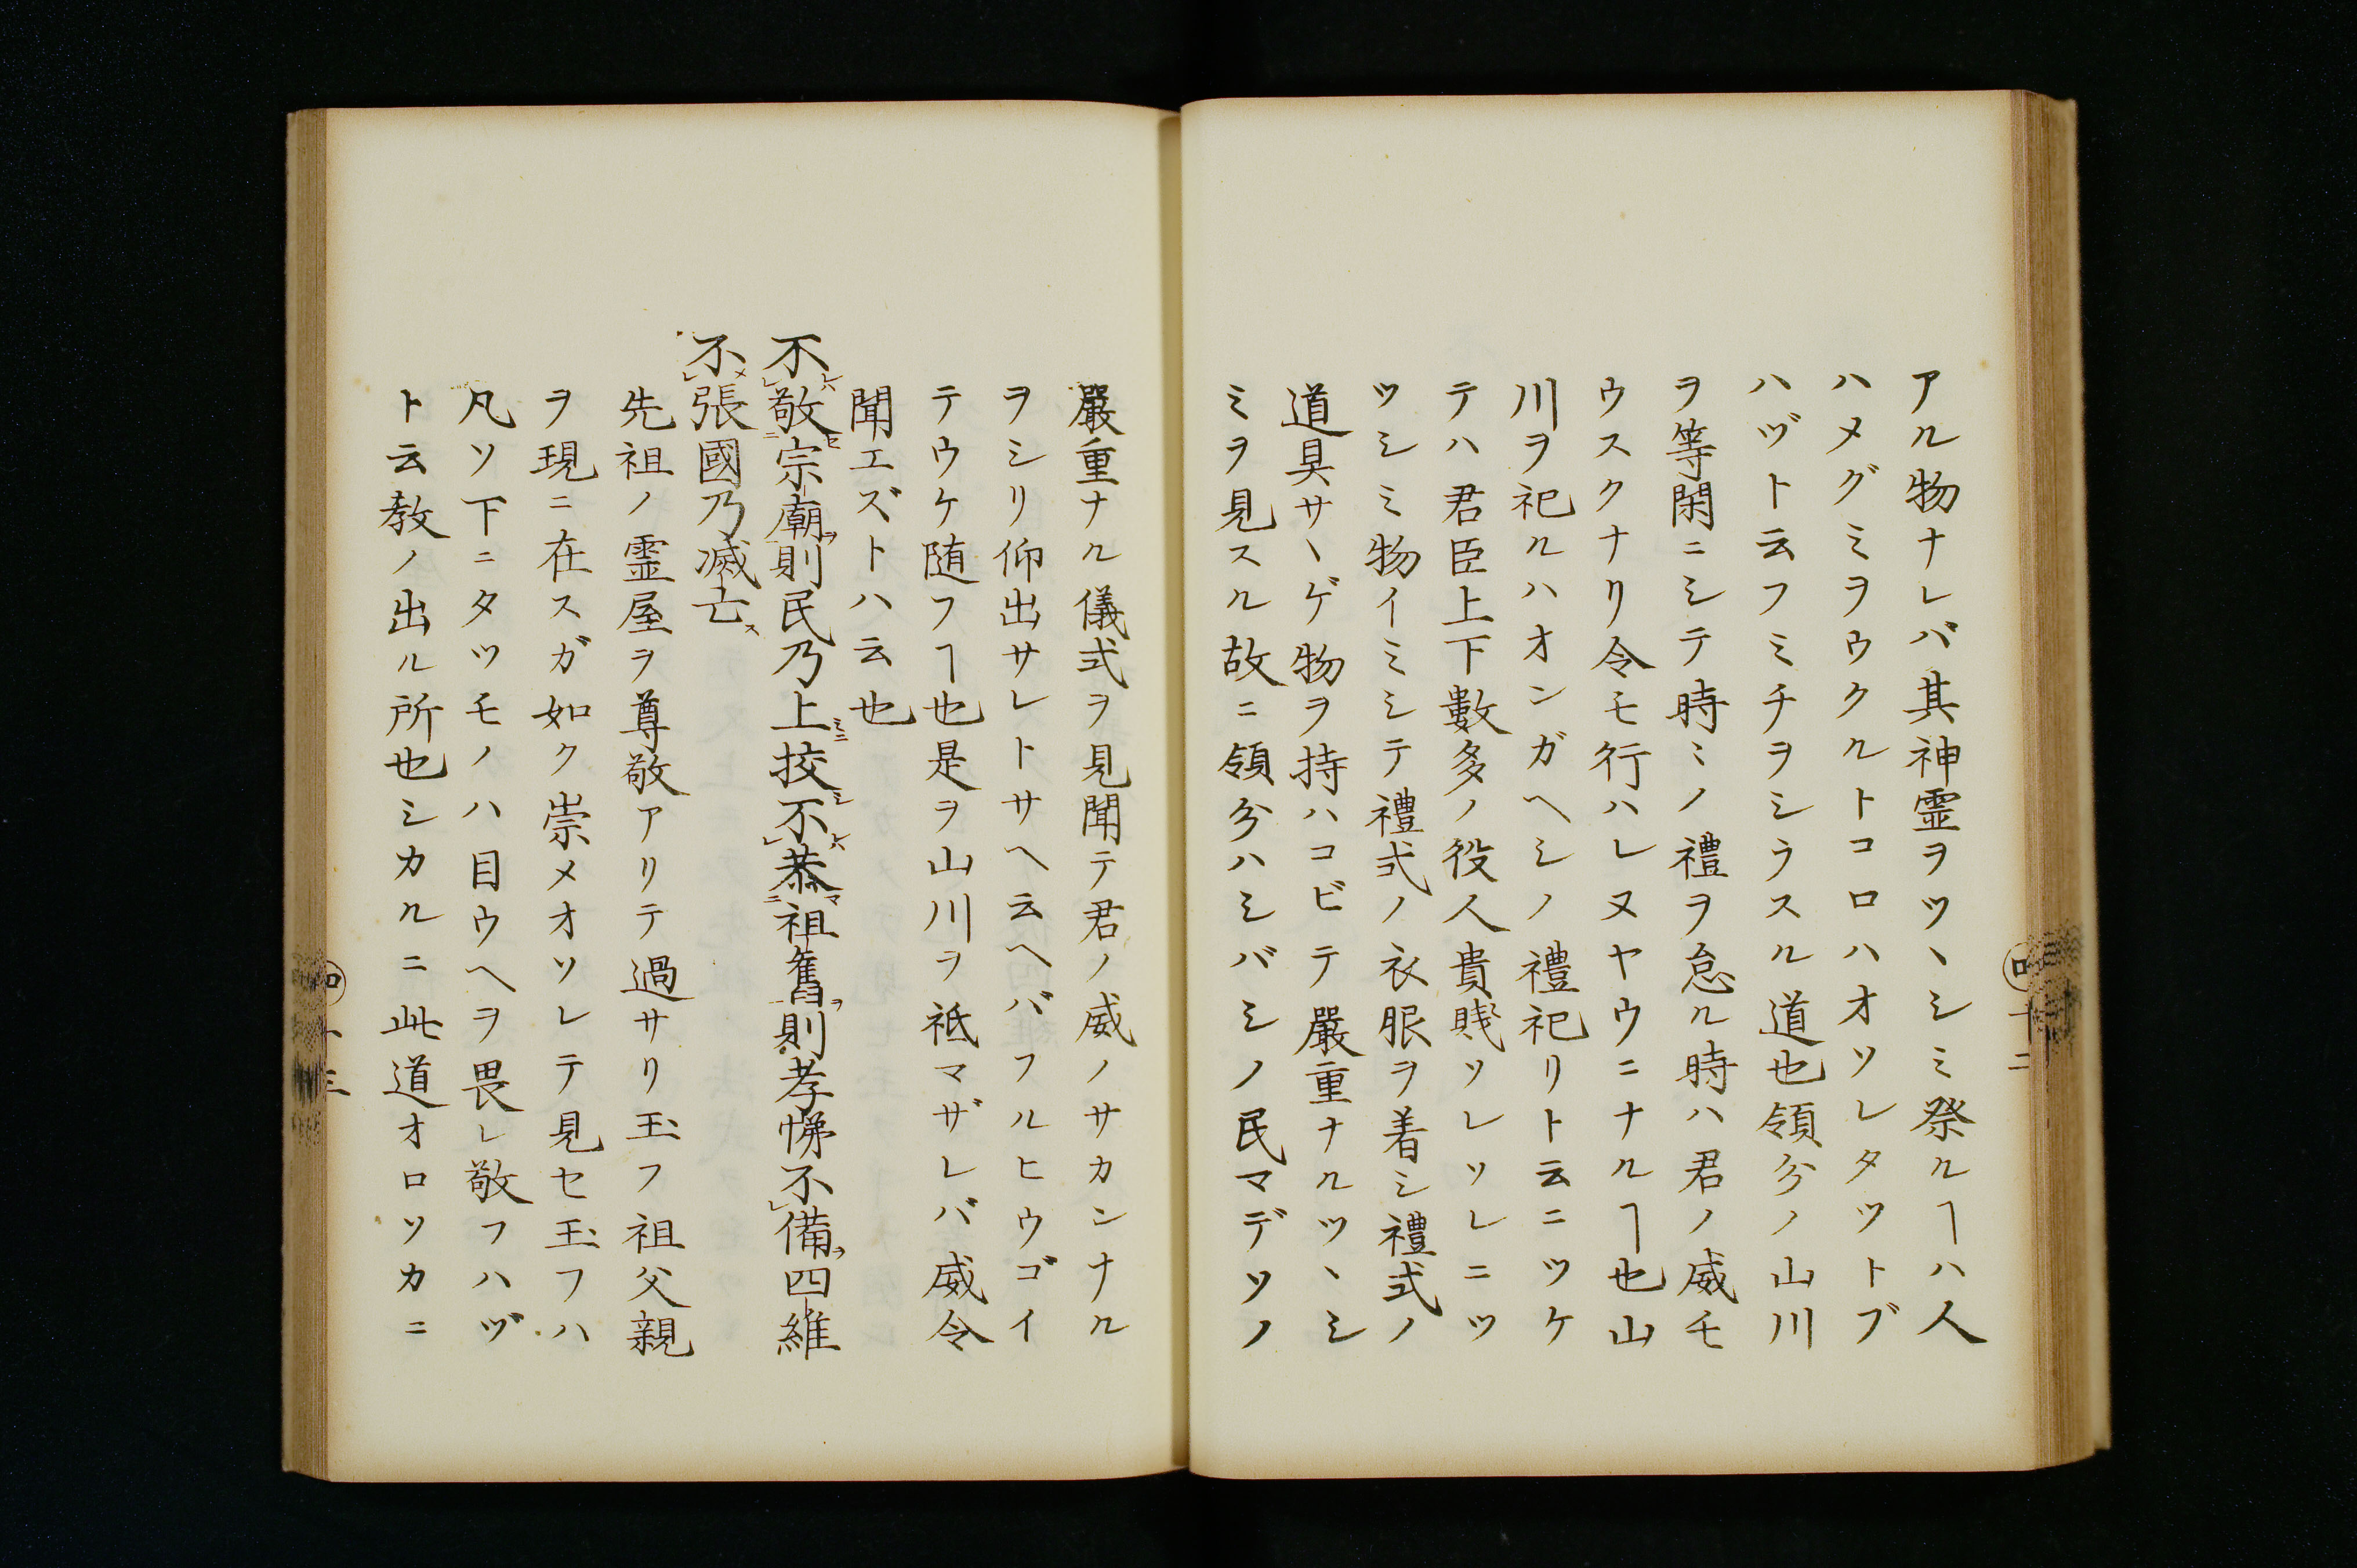 アル物ナレバ其神霊ヲツヽシミ祭ルヿハ人
ハメグミヲウクルトコロハオソレタツトブ
ハヅト云フミチヲシラスル道也領分ノ山川
ヲ等閑ニシテ時ミノ禮ヲ怠ル時ハ君ノ威モ
ウスクナリ令モ行ハレヌヤウニナルヿ也山
川ヲ祀ルハオンガヘシノ禮祀リト云ニツケ
テハ君臣上下數多ノ役人貴賎ソレソレニツ
ツシミ物イミシテ禮式ノ衣服ヲ着シ禮式ノ
道具サヽゲ物ヲ持ハコビテ嚴重ナルツヽシ
ミヲ見スル故ニ領分ハシバシノ民マデソノ
嚴重ナル儀式ヲ見聞テ君ノ威ノサカンナル
ヲシリ仰出サレトサヘ云ヘバフルヒウゴイ
テウケ随フヿ也是ヲ山川ヲ祗マザレバ威令
聞エズトハ云也
不敬宗廟則民乃上挍不恭祖舊則孝悌不備四維
不張國乃滅亡
先祖ノ霊屋ヲ尊敬アリテ過サリ玉フ祖父親
ヲ現ニ在スガ如ク崇メオソレテ見セ玉フハ
凡ソ下ニタツモノハ目ウヘヲ畏レ敬フハヅ
ト云教ノ出ル所也シカルニ此道オロソカニ